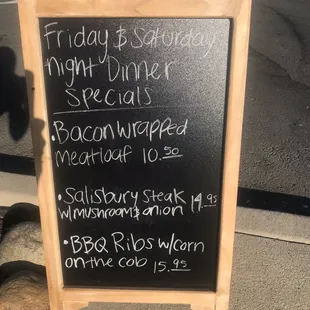 Friday & Saturday
night Dinner
Specials
• Bacon wrapped
meatloaf 10.50
• Salisbury Steak
w/mushroom & onion 14.95
• BBQ Ribs w/corn
on the cob 15.95